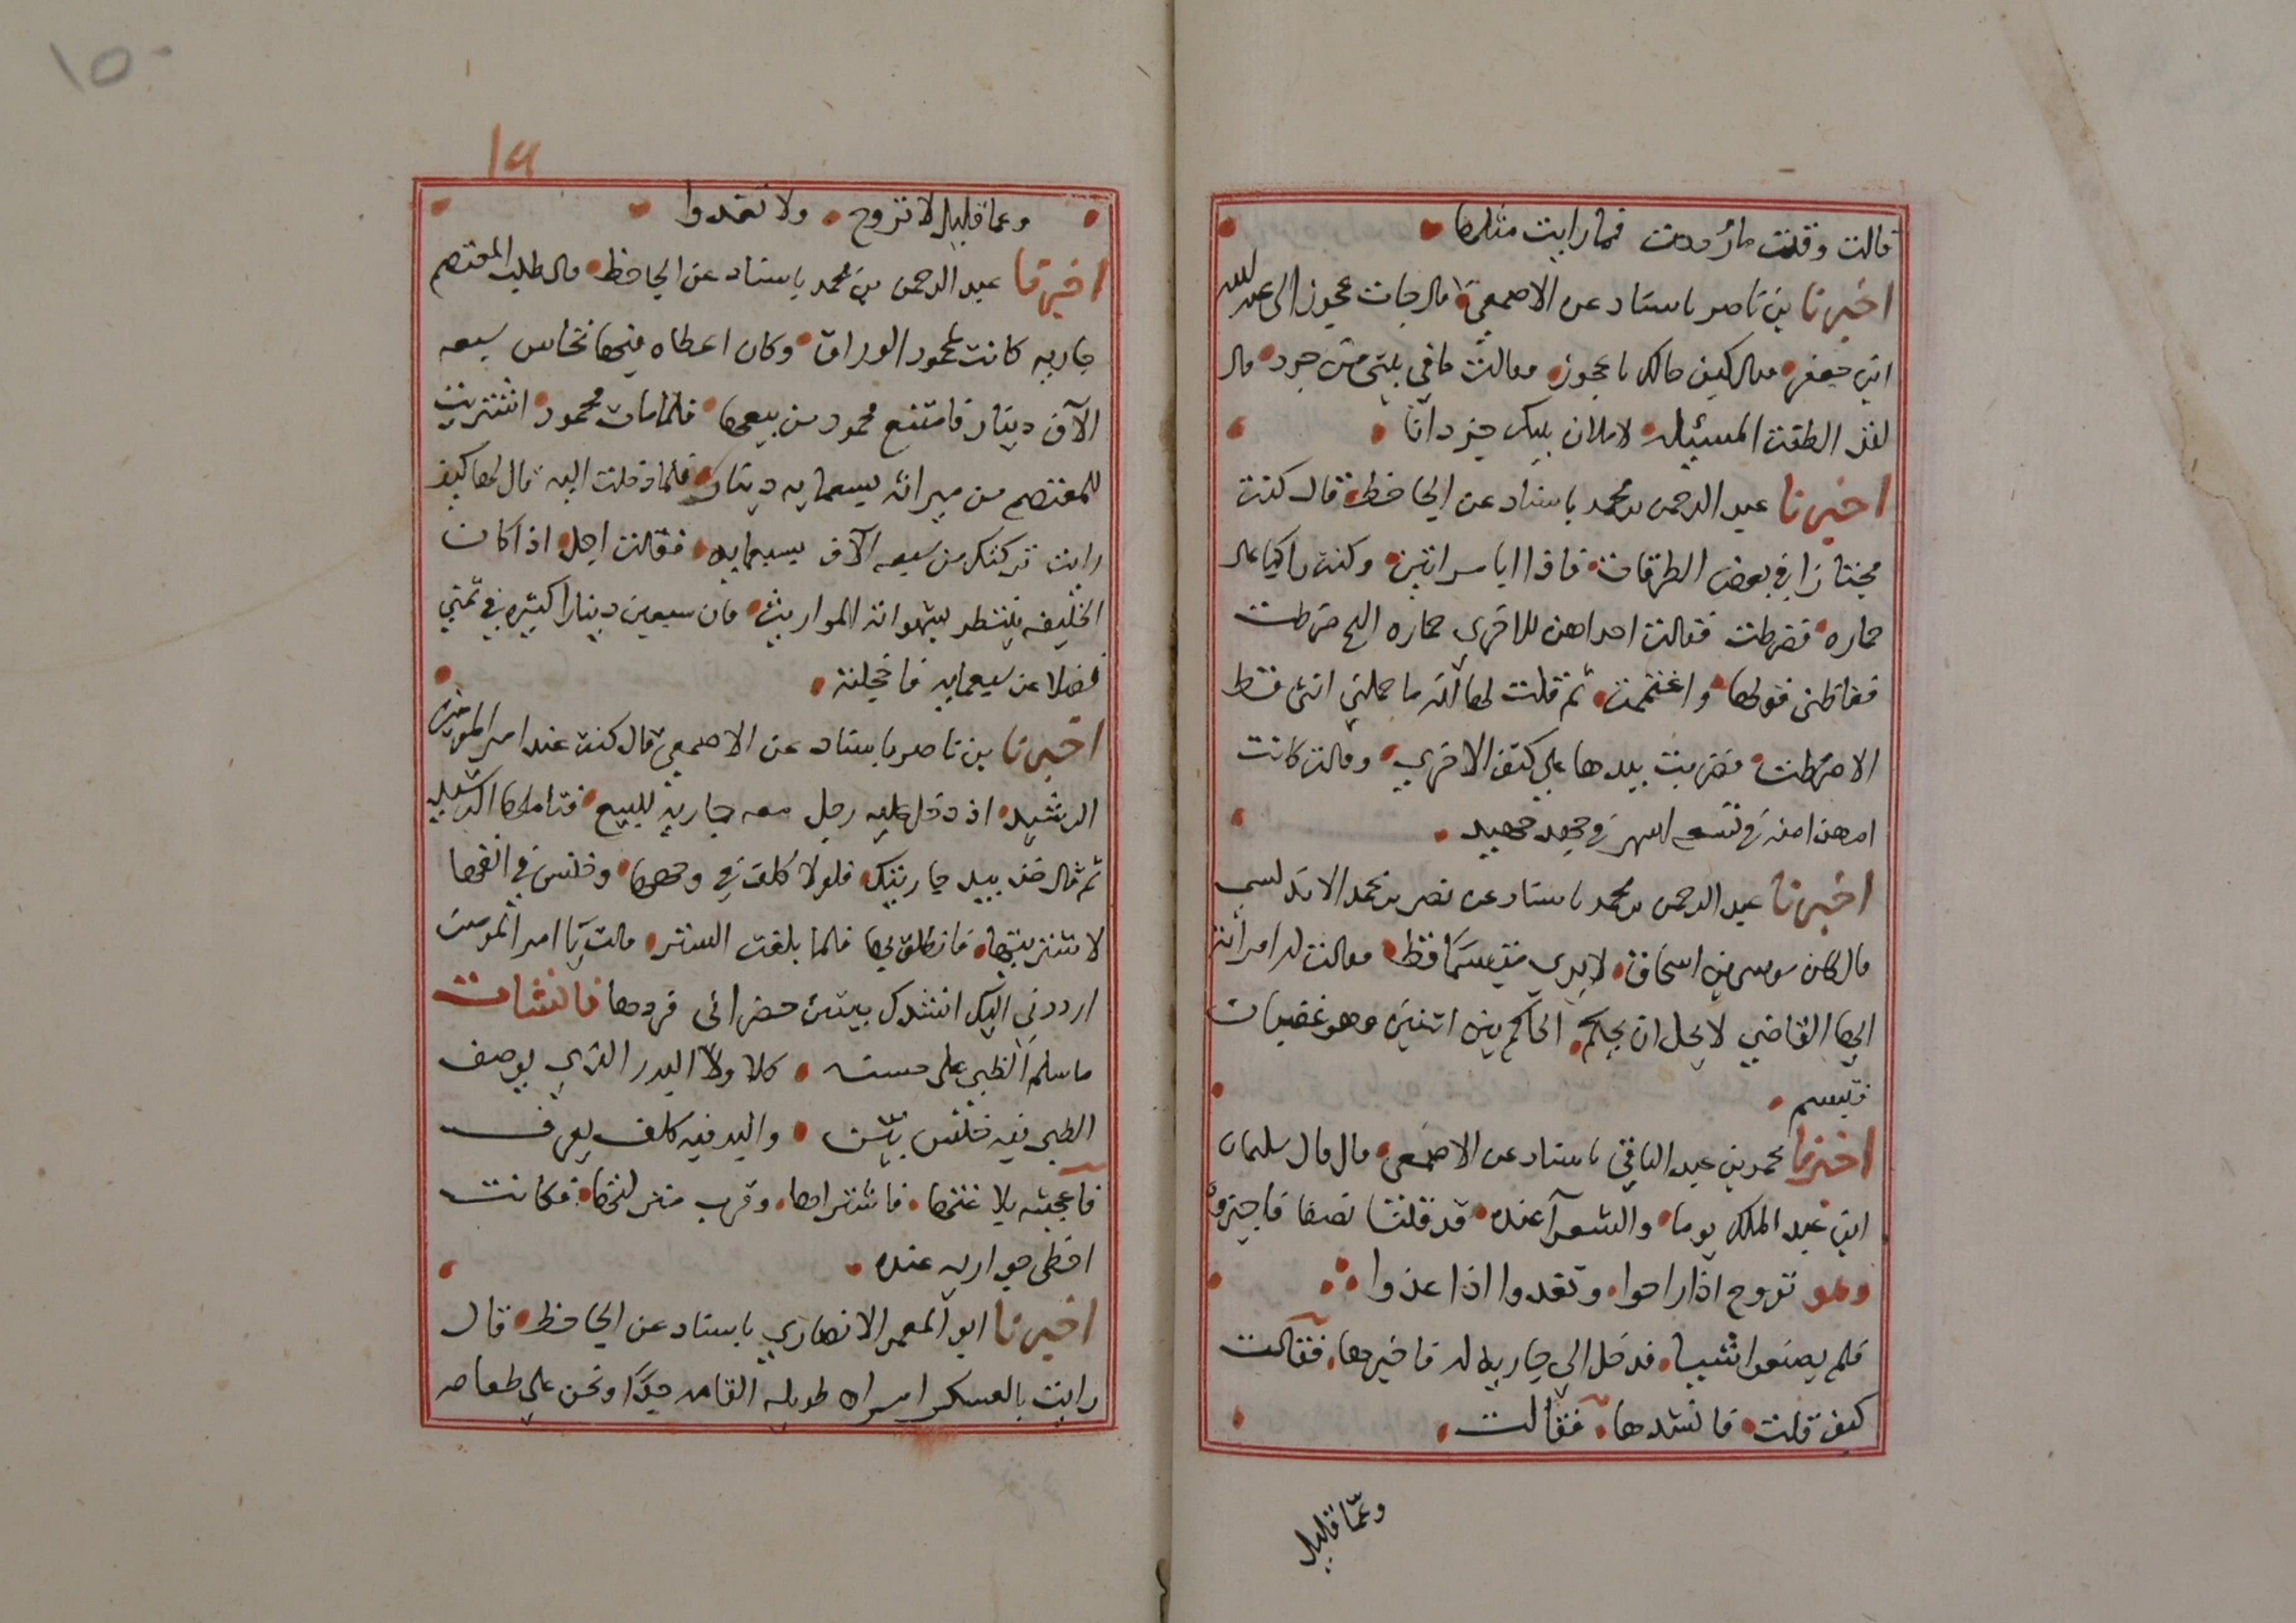 قالت وقلت فما رايت مثلها
اخبرنا بن ناصر باسناد عن الاصمعي قال جات عجوز الى عبد الله
ابن جعفر فقال كيف حالك يا عجوز فقالت ما في بيتي جرد قال
لقد الطفت المسئله لاملان بيتك جردانا
اخبرنا عبد الرحمن بن محمد باسناد عن الجاحظ قال كنت
مجتازا في بعض الطرقات فاذا انا بامراتين وكنت راكبا على
حماره فضرطت فقالت احداهن للاخري حماره الشيخ ضرطت
فغاظني قولها واغتممت ثم قلت لها انه ما حملتني انثى قط
الا ضرطت فضربت بيدها على كتف الاخري وقالت كانت
ام هذا منه في تسعه اشهر في جهد جهيد
اخبرنا عبد الرحمن بن محمد باسناد عن نصر بن محمد الاندلسي
قال كان موسى بن اسحاق لا يرى متبسما قط فقالت له امراته
ايها القاضي لا يحل ان يحكم الحاكم بين اثنين وهو غضبان
فتبسم
اخبرنا محمد بن عبد الباقي باسناد عن الاصمعي قال قال سليمان
ابن عبد الملك يوما والشعرآ عنده قد قلت نصفا فاجيزوه
وهو تروح اذا راحوا وتغدوا اذا غدوا
فلم يصنعوا شيا فدخل الي جاريه له فاخبرها فقالت
كيف قلت فانشدها فقالت
وعمّا قليل
١٥٠
١٩
وعما قليل لا تروح ولا تغدوا
اخبرنا عبد الرحمن بن محمد باسناد عن الجاحظ قال طلب المعتصم
جاريه كانت لمحمود الوراق وكان اعطاه فيها نخاس سبعه
الآف دينار فامتنع محمود من بيعها فلما مات محمود اشتريت
للمعتصم من ميراثه بسبعمايه دينار فلما دخلت اليه قال لها كيف
رايت تركتك من سبعه الآف بسبعمايه فقالت اجل اذا كان
الخليفه ينتظر بشهواته المواريث فان سبعين دينارا كثيره في ثمني
فضلا عن سبعمايه فاخجلته
اخبرنا بن ناصر باسناد عن الاصمعي قال كنت عند امير المومنين
الرشيد اذ دخل عليه رجل معه جاريه للبيع فتاملها الرشيد
ثم قال خذ بيد جاريتك فلولا كلف في وجهها وخنس في انفها
لاشتريتها فانطلق بها فلما بلغت الستر قالت يا امير المومنين
ارددني اليك انشدك بيتين حضراني فردها فانشات
ما سلم الظبي على حسنه كلا ولا البدر الذي يوصف
الظبي فيه خنس بيّن والبدر فيه كلف يعرف
فاعجبته بلاغتها فاشتراها وقرب منزلتها فكانت
احظى جواريه عنده
اخبرنا ابو المعمر الانصاري باسناد عن الجاحظ قال
رايت بالعسكر امراه طويله القامه جدًا ونحن على طعام